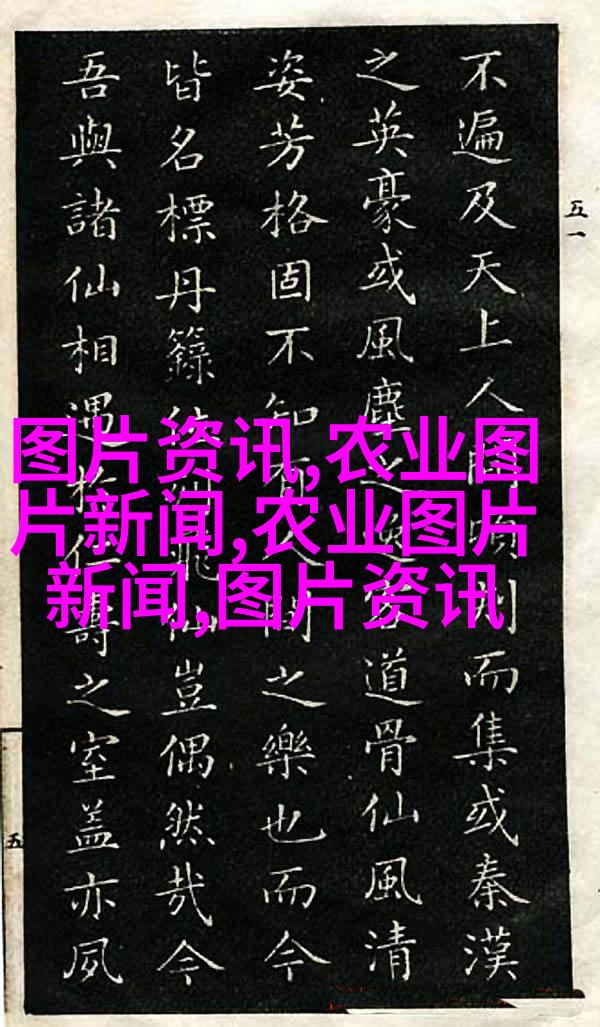 不遍及天上人間刻而集或秦漢
之英豪或風塵之客道骨仙風清
姿芳格固不知有人間之樂也而今
皆名標丹籙飛仙豈偶然哉今
吾與諸仙相遇於仁壽之室蓋亦夙
五一
五
图片资讯,农业图
片新闻,农业图片
新闻,图片资讯